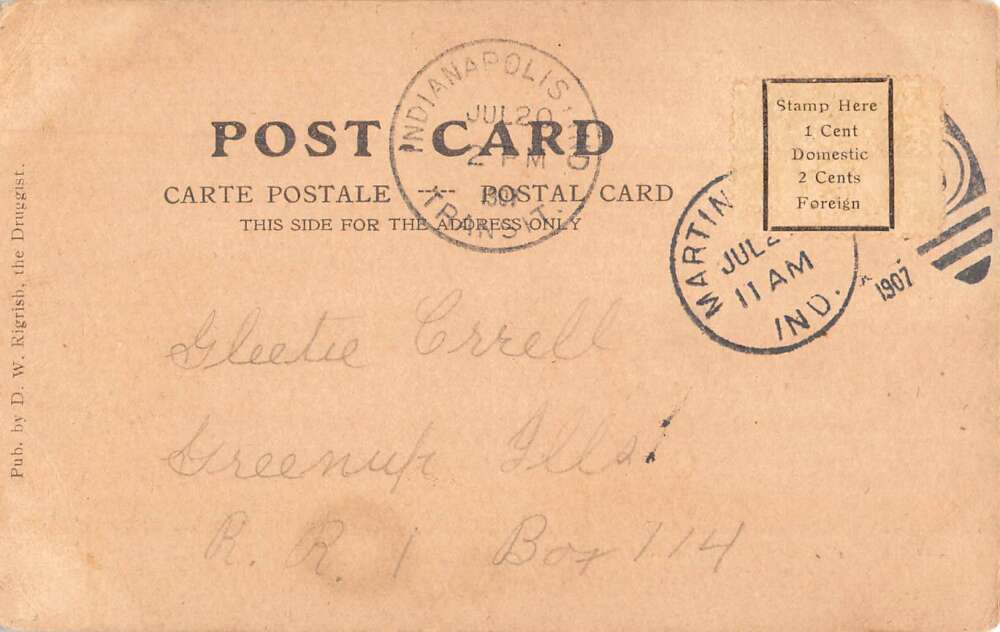 POST CARD
CARTE POSTALE POSTAL CARD
THIS SIDE FOR THE ADDRESS ONLY
INDIANAPOLIS
JUL 20
2 PM
TRANSIT
Stamp Here
1 Cent
Domestic
2 Cents
Foreign
MARTIN
JUL 2
11 AM
IND.
1907
Pub. by D. W. Rigrish, the Druggist.
Errell
Greenup Ills
R. R. 1 Box 114